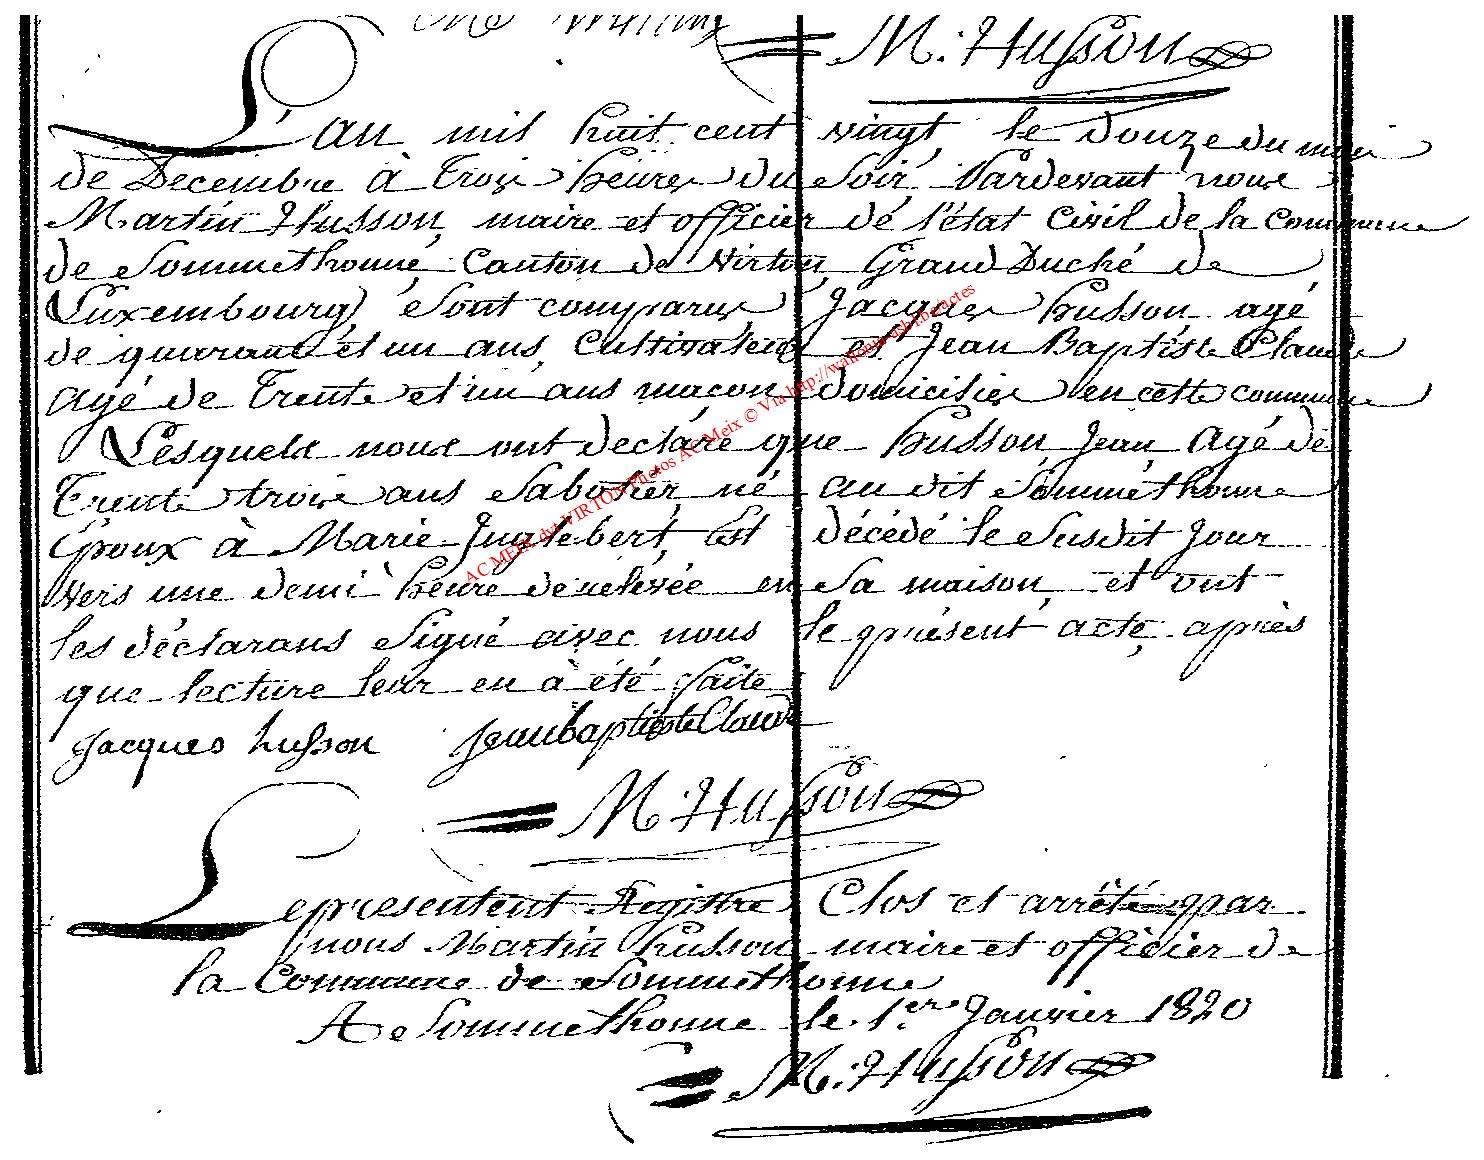 M. Husson
L'an mil huit cent vingt, le douze du mois
de Decembre à trois heures du Soir, Pardevant nous
Martin Husson, maire et officier de l'état Civil de la Commune
de Sommethonne, Canton de Virton, Grand Duché de
Luxembourg, Sont comparus, Jacques husson agé
de quarante et un ans, Cultivateur et Jean Baptiste Claude
agé de Trente et un ans maçon, domiciliés en cette commune
Lesquels nous ont declaré que husson, Jean, Agé de
Trente trois ans Sabotier, né au dit Sommethonne
Époux à Marie Inglebert, Est décédé le Susdit Jour
vers une demi heure de relevée en Sa maison, et ont
les déclarans Signé avec nous le présent acte, après
que lecture leur en à été faite
Jacques husson Jean baptiste Claude
M. Husson
Le presentent Registre Clos et arrêté par
nous Martin husson maire et officier de
la Commune de Sommethonne
A Sommethonne le 1.er Janvier 1820
M. Husson
AC MEIX dvt VIRTON Photos AC Meix © Via http://wallonica.sbib.be/actes